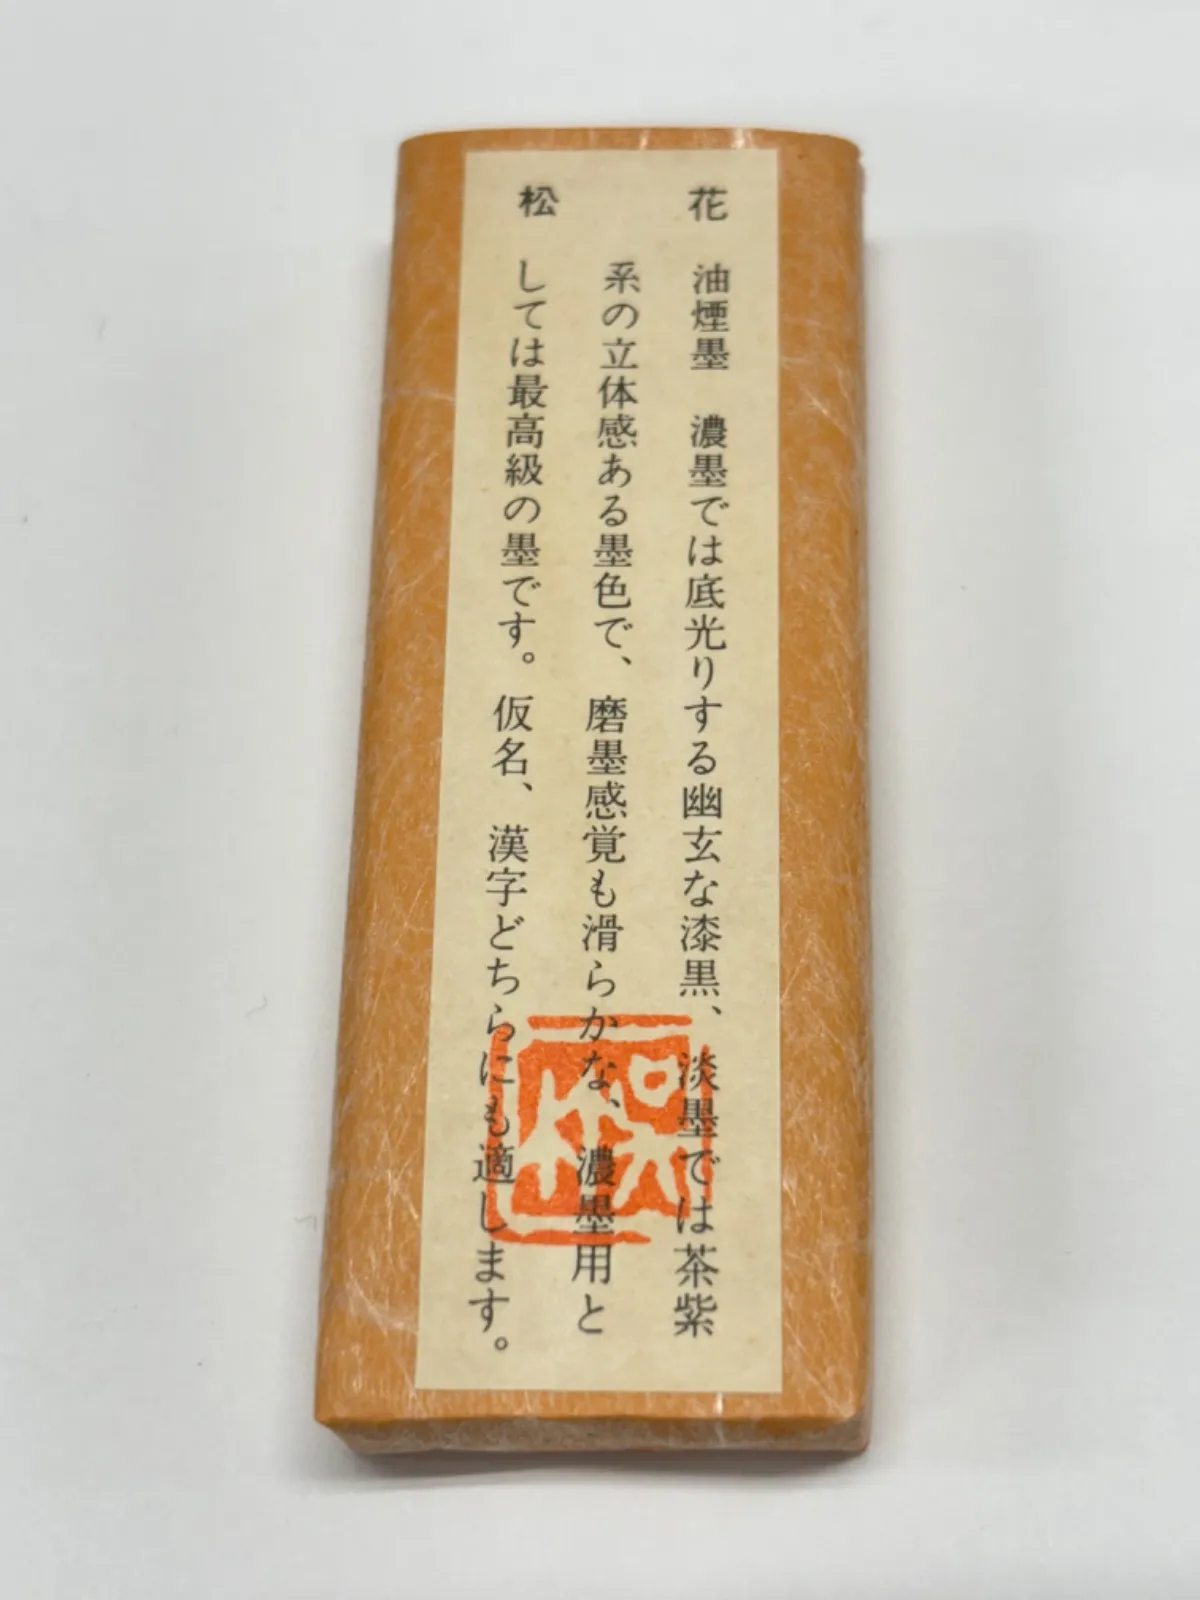 花松
油煙墨　濃墨では底光りする幽玄な漆黒、淡墨では茶紫
系の立体感ある墨色で、磨墨感覚も滑らかな、濃墨用と
しては最高級の墨です。仮名、漢字どちらにも適します。